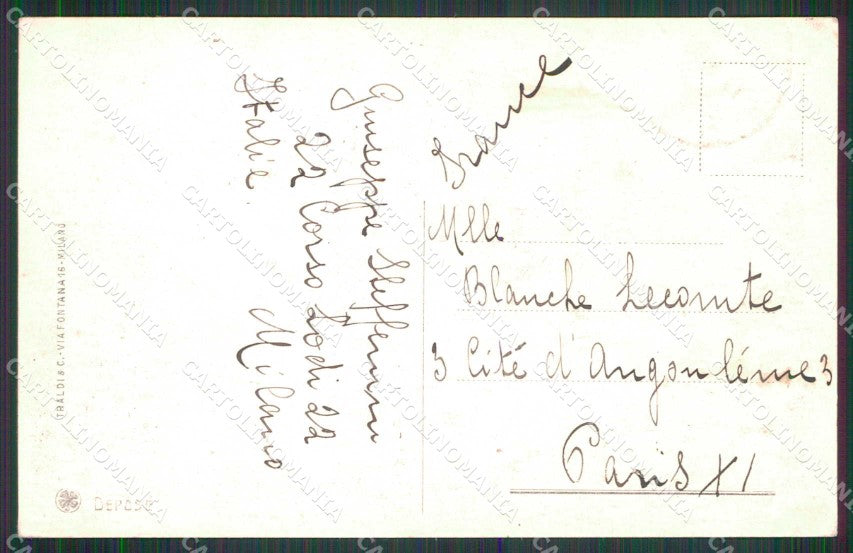 Giuseppe Steffenini
22 Corso Lodi 22
Milano
Italie.
France
Mlle
Blanche Lecomte
3 Cité d'Angoulême 3
Paris XI
TRALDI & C. - VIA FONTANA 16 - MILANO
DEPOSÉ
CARTOLINOMANIA